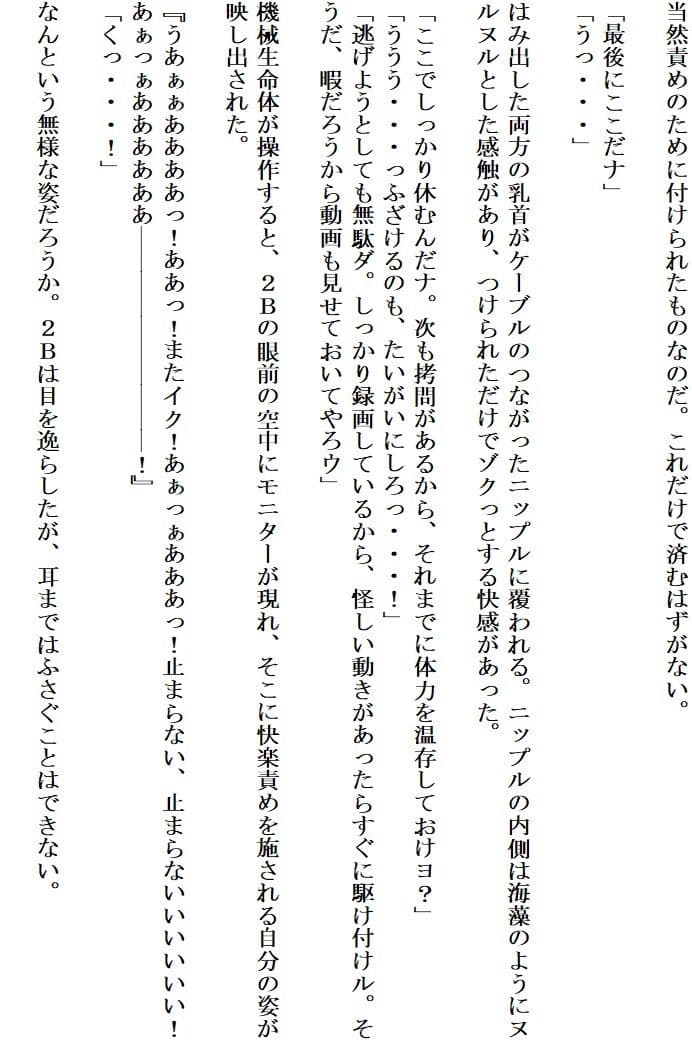 当然責めのために付けられたものなのだ。これだけで済むはずがない。
「最後にここだナ」
「うっ・・・」
はみ出した両方の乳首がケーブルのつながったニップルに覆われる。ニップルの内側は海藻のようにヌ
ルヌルとした感触があり、つけられただけでゾクっとする快感があった。
「ここでしっかり休むんだナ。次も拷問があるから、それまでに体力を温存しておけヨ？」
「ううう・・・っふざけるのも、たいがいにしろっ・・・！」
「逃げようとしても無駄ダ。しっかり録画しているから、怪しい動きがあったらすぐに駆け付けル。そ
うだ、暇だろうから動画も見せておいてやろウ」
機械生命体が操作すると、２Ｂの眼前の空中にモニターが現れ、そこに快楽責めを施される自分の姿が
映し出された。
『うあぁぁあああああっ！ああっ！またイク！あぁっぁあああっ！止まらない、止まらないいいいいい！
あぁっぁあああああああ――――――――！』
「くっ・・・！」
なんという無様な姿だろうか。２Ｂは目を逸らしたが、耳まではふさぐことはできない。